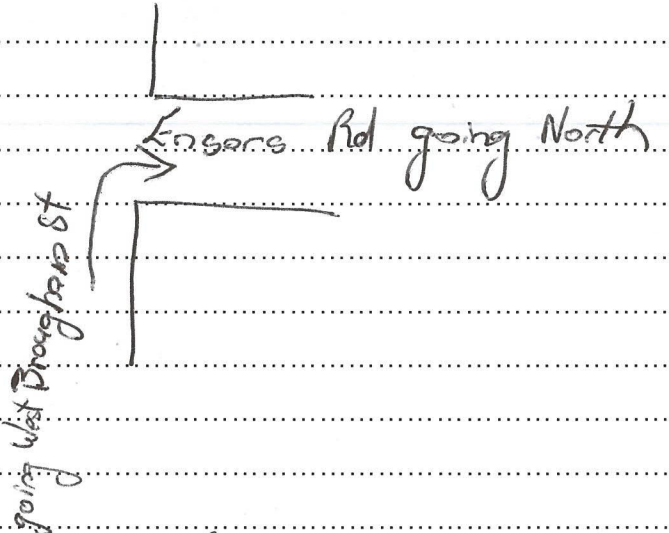 Ensors Rd going North
going West Brougham St